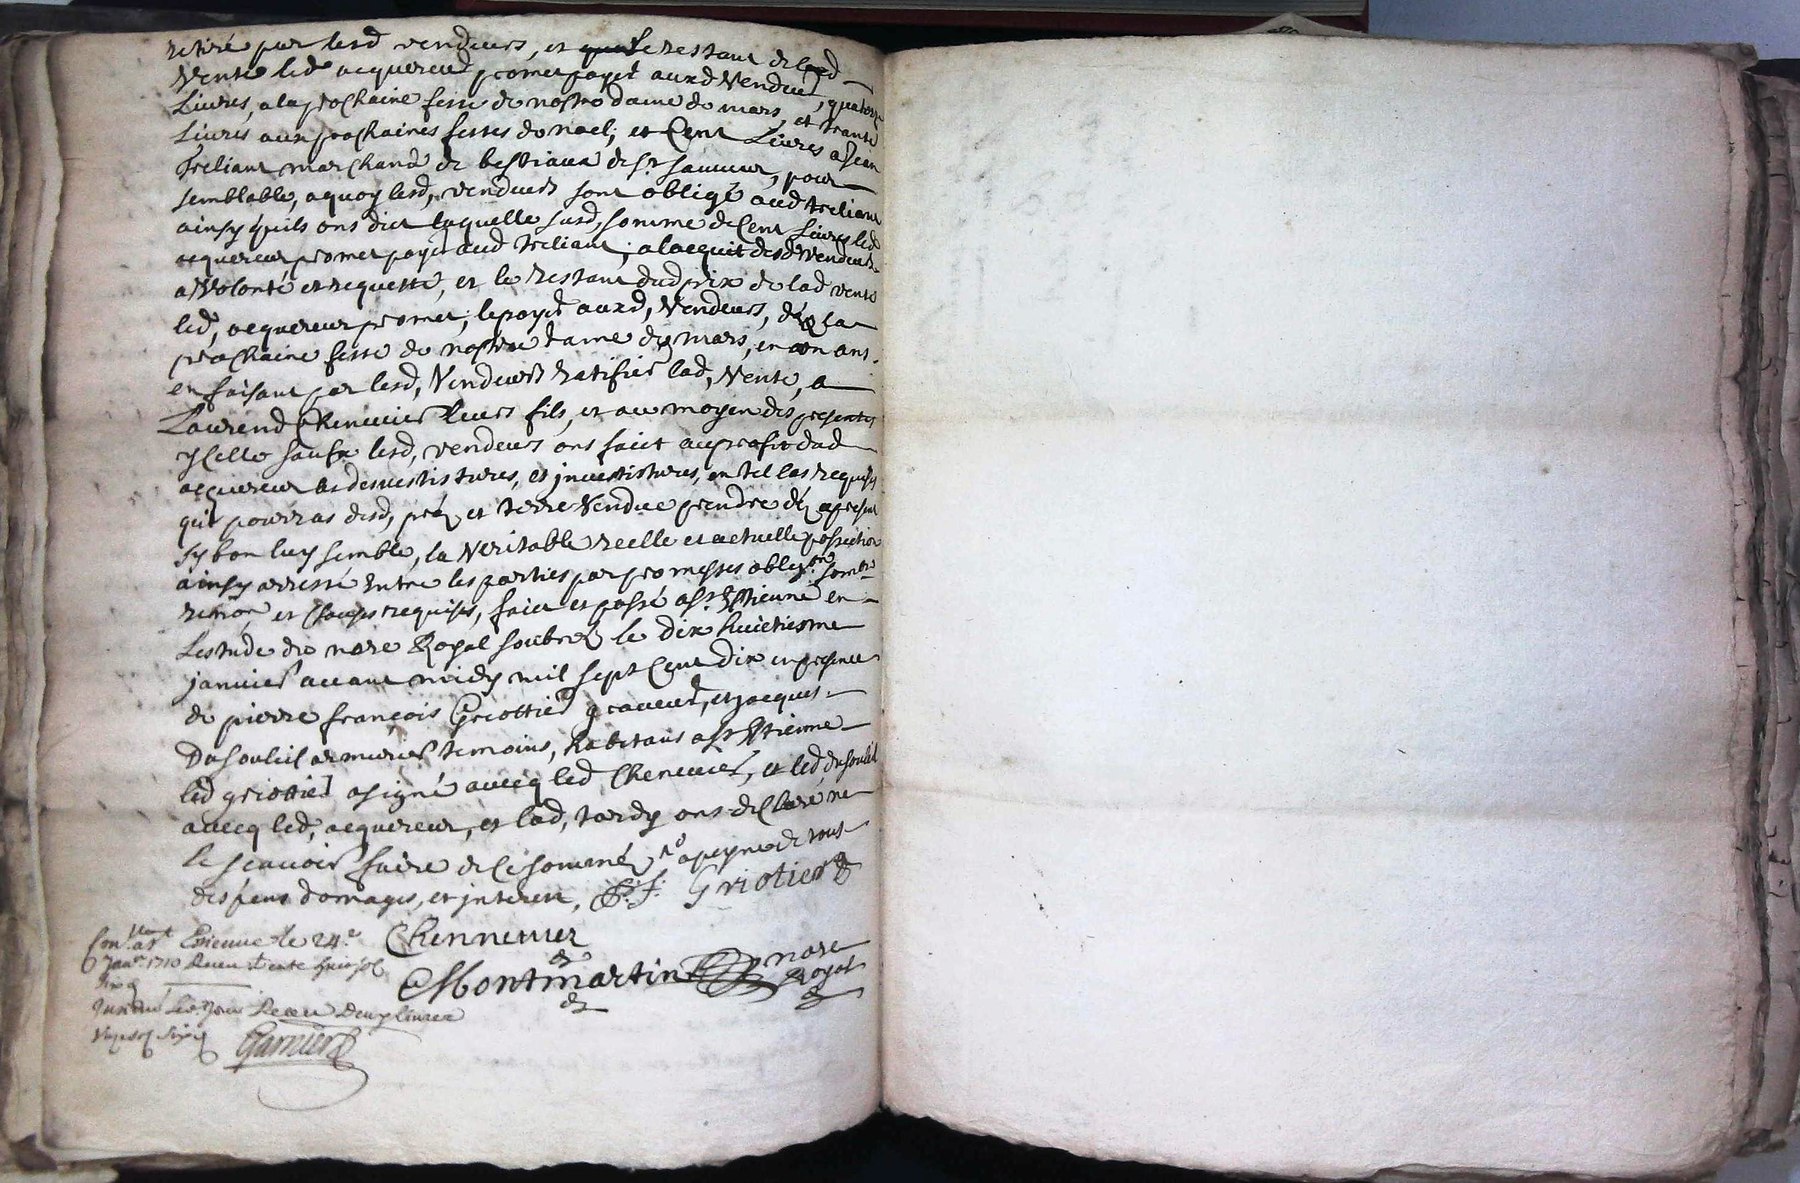 retiré par lesd vendeurs, et que le restant de lad
vente led acquereur promet payer auxd vendeurs, quatorze
Livres, a la prochaine feste de nostre dame de mars, et trante
Livres aux prochaines festes de noel; et Cent Livres a Jean
treliant marchand de bestiaux de st sauveur, pour
semblable, a quoy lesd, vendeurs sont obligé aud treliant
ainsy quils ons dict laquelle susd, somme de Cent Livres led
acquereur promet payer aud treliant; a lacquit desd vendeurs
a volonté et requeste, et le restant dud prix de lad vente
led, acquereur promet, le payer auxd, vendeurs, dez la
prochaine feste de nostre dame de mars, en un ans.
en faisant par lesd, vendeurs ratifier lad, vente, a
Laurend Chenevier leurs fils, et au moyen des presentes
ycelle lesd, vendeurs ons faict au profit dud
acquereur les desvestitures, et jnvestitures, en tel cas requises
qui pourras desd, pré et terre vendue prendre dez apresent
sy bon luy semble, la veritable reelle et actuelle possession
ainsy arresté entre les parties par promesses oblig.on
renon, et clauses requises, faict et passé a st Estienne en
Lestude du nore Royal soubné le dix huictiesme
janvier avant midy mil sept Cent dix en presence
de pierre françois Griottier graveur, et jacques
Dusouleil armurier temoins, habitans a st Estienne
led griottier a signé avecq led Chenevier, et led dusouleil
avecq led, acquereur, et lad, tardy ons declaré ne
le scavoir faire de ce sommé a peyne de tous
despens domages, et jnterest, P. f. Griotier
Con.lle a st Estienne le 24.e
Janer 1710 Receu
Chennevier
Montmartin nore
Royal
led. Jour Receu deux livres
Garnier